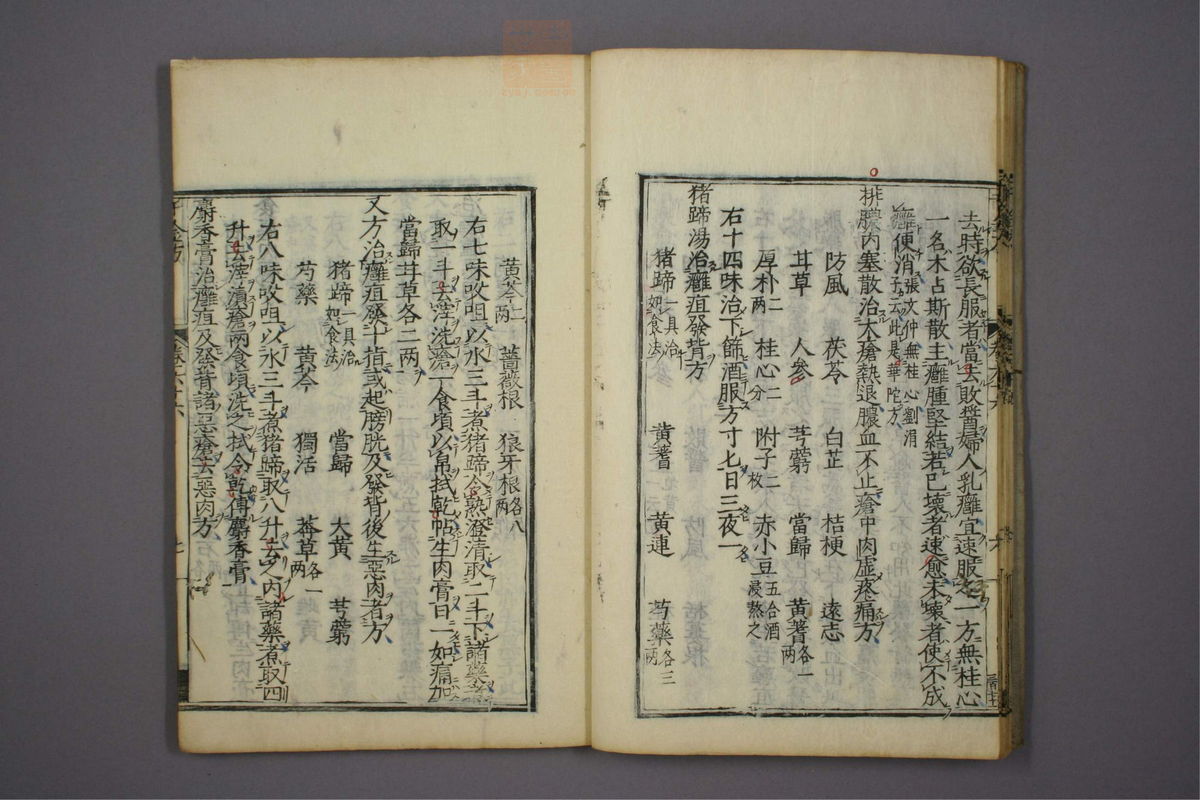 去時欲長服者當去敗醬婦人乳癰宜速服之一方無桂心
一名木占斯散主癰腫堅結若已壞者速愈未壞者使不成
癰便消張文仲無桂心劉涓子云此是華陀方
排膿內塞散治大瘡熱退膿血不止瘡中肉虛疼痛方
防風 茯苓 白芷 桔梗 遠志
甘草 人參 芎藭 當歸 黃耆各一兩
厚朴二兩 桂心二分 附子二枚 赤小豆五合酒浸熬之
右十四味治下篩酒服方寸匕日三夜一
猪蹄湯治癰疽發背方
猪蹄一具治如食法 黃耆 黃連 芍藥各三兩
黃芩二兩 薔薇根 狼牙根各八兩
右七味㕮咀以水三斗煮猪蹄令熟澄清取二斗下諸藥
取一斗去滓洗瘡一食頃以帛拭乾帖生肉膏日二如痛加
當歸甘草各二兩
又方治癰疽發十指或起膀胱及發背後生惡肉者方
猪蹄一具治如食法 當歸 大黃 芎藭
芍藥 黃芩 獨活 莽草各一兩
右八味㕮咀以水三斗煮猪蹄取八升去蹄內諸藥煮取四
升去滓漬瘡兩食頃洗之拭令乾傅麝香膏
麝香膏治癰疽及發背諸惡瘡去惡肉方